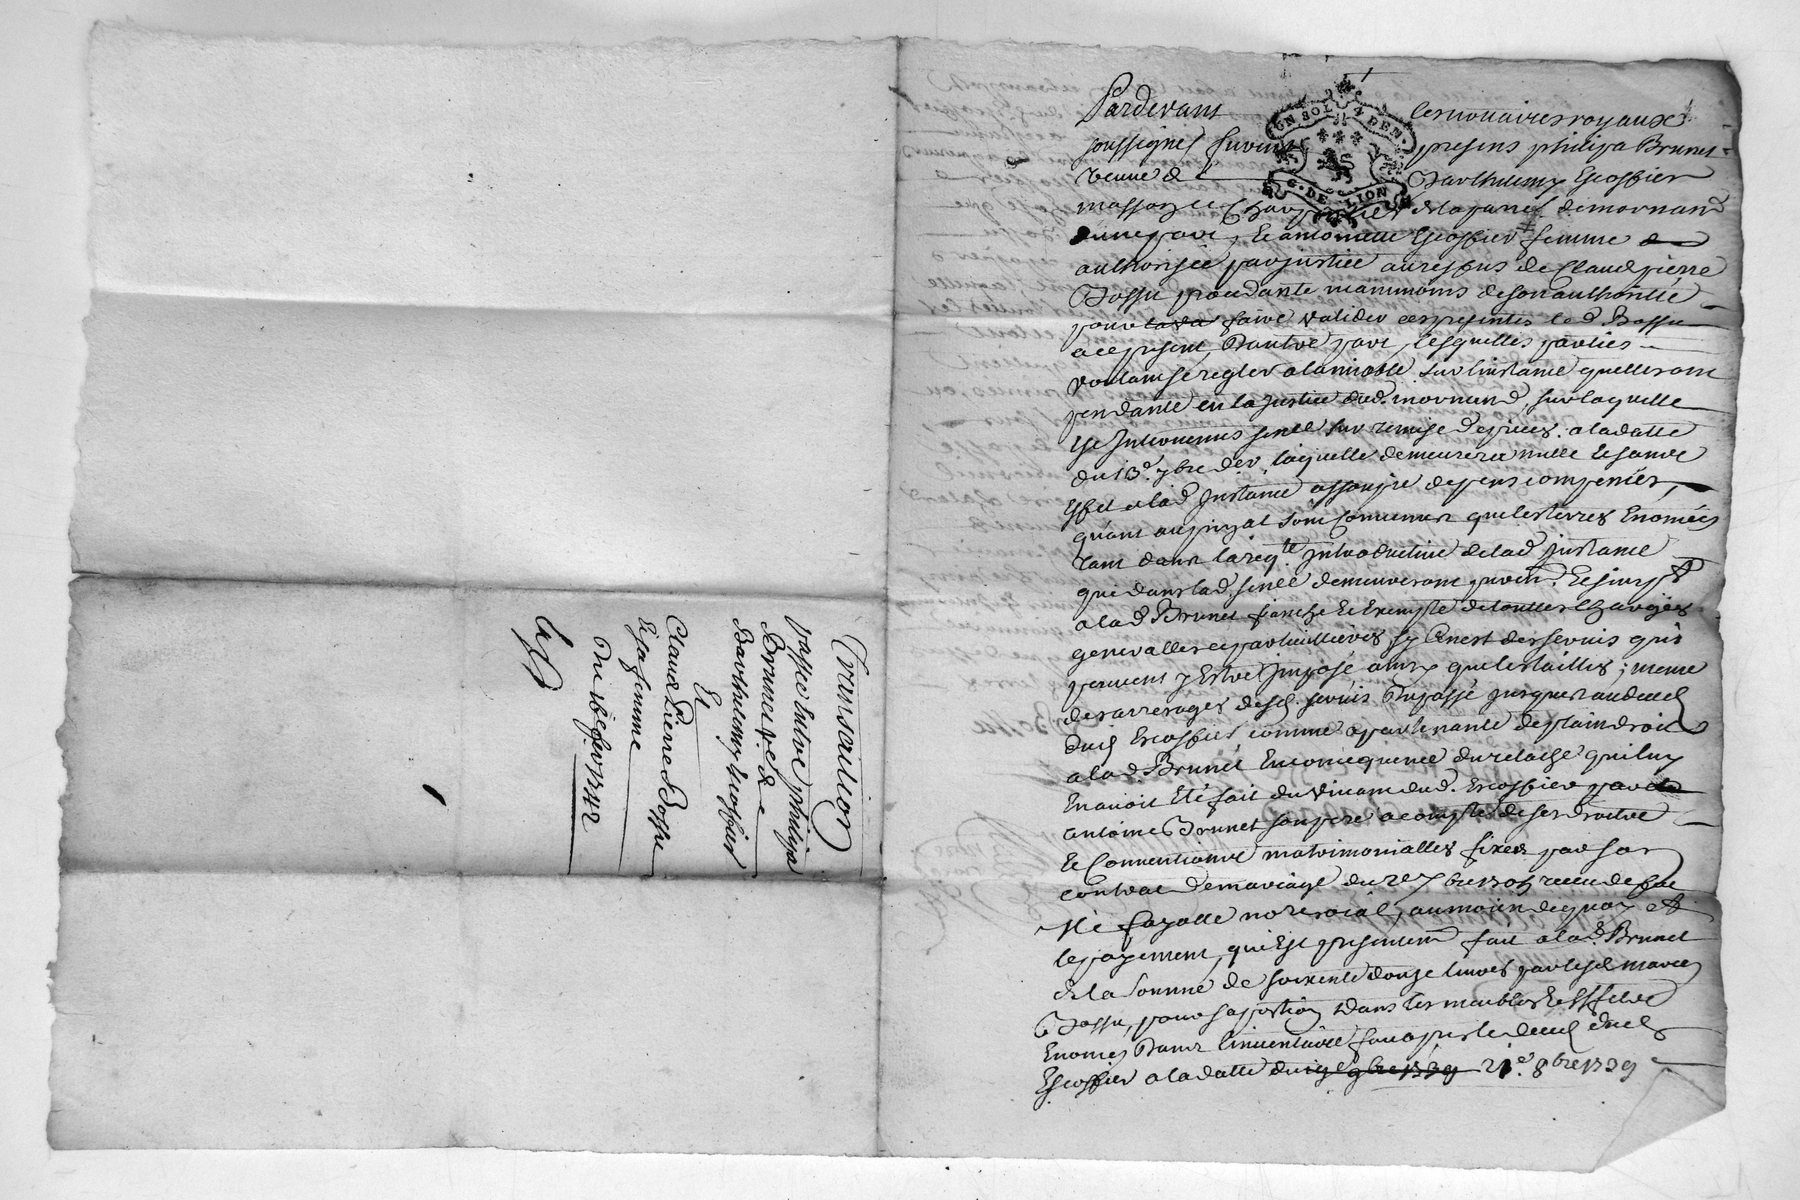 Transaction
passée Entre philipa
Brunnet Ve de
Barthelemy Escoffier
Et
Claude Pierre Bossu
Et sa femme
Du 16 1742
UN SOL 4 DEN.
G. DE LION
Pardevant les notaires royaux
soussignés furent presens philipa Brunet
veuve de Barthelemy Escoffier
masson et Charpentier de la parroisse de mornand
d'une part, Et antoinette Escoffier femme
authorisée par justice au reffus de Claude pierre
Bossu procedante neanmoins de son authorité
pour faire valider ces presentes led. Bossu
a ce present, d'autre part, lesquelles parties
voulant se regler a l'amiable sur l'instance quelles ont
pendante en la justice dud. mornand, sur laquelle
Est Intervenus sentce sur remise de pieces a la datte
du 13e 7bre der, laquelle demeurera nulle Et sans
Effet et lad. Instance assoupie depens compensés,
quant au prinpal sont Convenus que les terres Enoncées
tant dans la reqte introductive de lad. instance
que dans lad. sentce demeureront
a lad. Brunet franche Et Exempte de touttes Charges
generalles et particullieres sy Ce n'est des servis qui
peuvent y Estre Imposé ainsy que les tailles; meme
des arrerages desd. servis Imposé jusques au deced
dud. Escoffier comme apartenante de plain droit
a lad. Brunet En consequence du relache qui luy
En avoit Eté fait du vivant dud. Escoffier par
antoine Brunet son pere a compte de ses droits
Et Conventions matrimonialles fixés par son
contrat de mariage du 7bre 1705 receu de
Me fayolle nore royal, au moien de quoy et
le payement, qui Est presentemt fait a lad. Brunet
de la somme de soixente douze livres par lesd. mariés
Bossu, pour sa portion dans les meubles Et Effets
Enoncés Dans l'inventaire fait apres le deced dud.
Escoffier a la datte du 9bre 1739 21e 8bre 1739